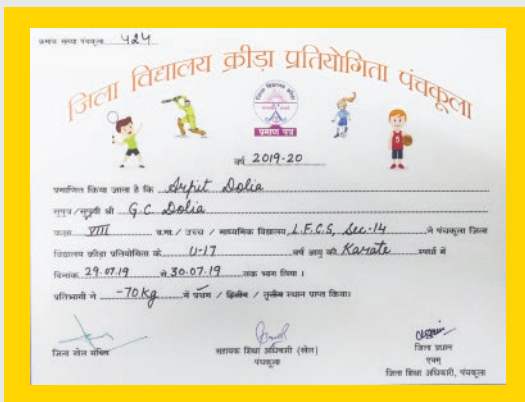 क्रमांक संख्या पंचकूला 424
जिला विद्यालय क्रीड़ा प्रतियोगिता पंचकूला
प्रमाण पत्र
वर्ष 2019-20
प्रमाणित किया जाता है कि Arpit Dolia
सुपुत्र/सुपुत्री श्री G.C. Dolia
कक्षा VIII व.मा./ उच्च / माध्यमिक विद्यालय L.F.C.S, Sec-14 ने पंचकूला जिला
विद्यालय क्रीड़ा प्रतियोगिता के U-17 वर्ष आयु की Karate स्पर्धा में
दिनांक 29.07.19 से 30.07.19 तक भाग लिया ।
प्रतिभागी ने -70 Kg में प्रथम / द्वितीय / तृतीय स्थान प्राप्त किया।
जिला खेल सचिव
सहायक शिक्षा अधिकारी (खेल)
पंचकूला
जिला प्रधान
एवम्
जिला शिक्षा अधिकारी, पंचकूला